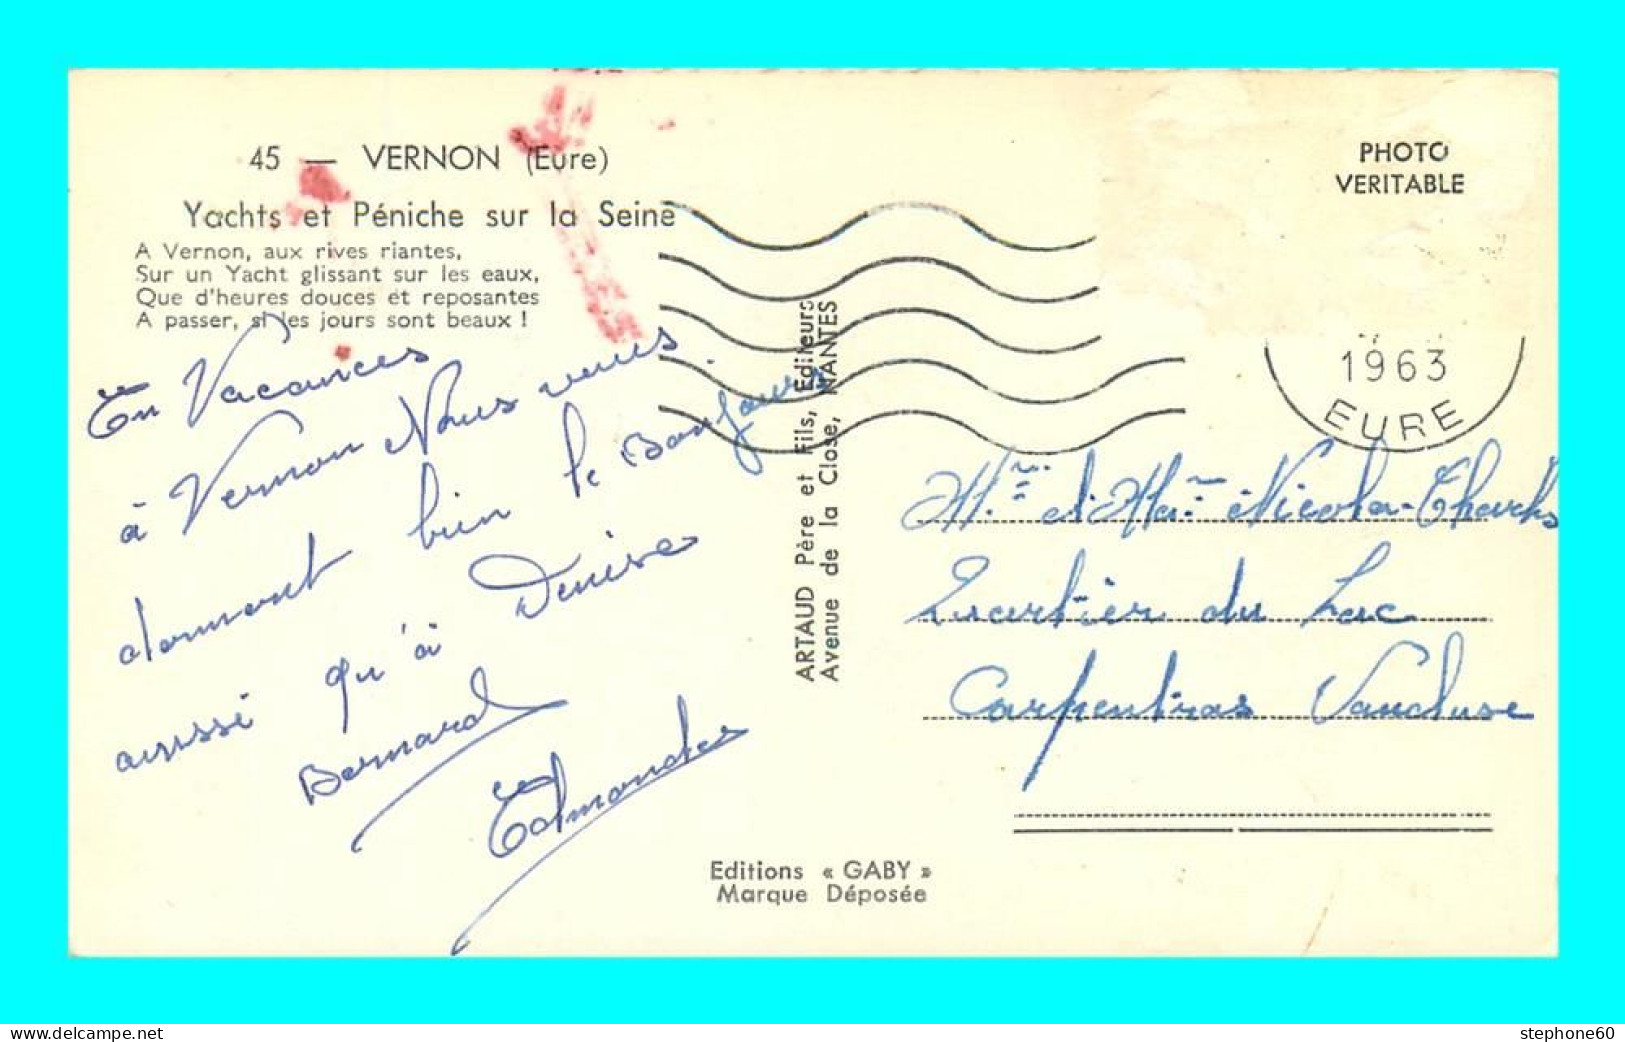 45 — VERNON (Eure)
Yachts et Péniche sur la Seine
A Vernon, aux rives riantes,
Sur un Yacht glissant sur les eaux,
Que d'heures douces et reposantes
A passer, si les jours sont beaux !
En Vacances
à Vernon Nous vous
donnont bien le Bonjours
aussi qu'à Denise
Bernard
Edmonde
ARTAUD Père et Fils, Editeurs
Avenue de la Close, NANTES
Editions « GABY »
Marque Déposée
PHOTO
VERITABLE
1963
EURE
Mr et Ma Nicola Charles
Quartier du Lac
Carpentras Vaucluse
www.delcampe.net
stephone60